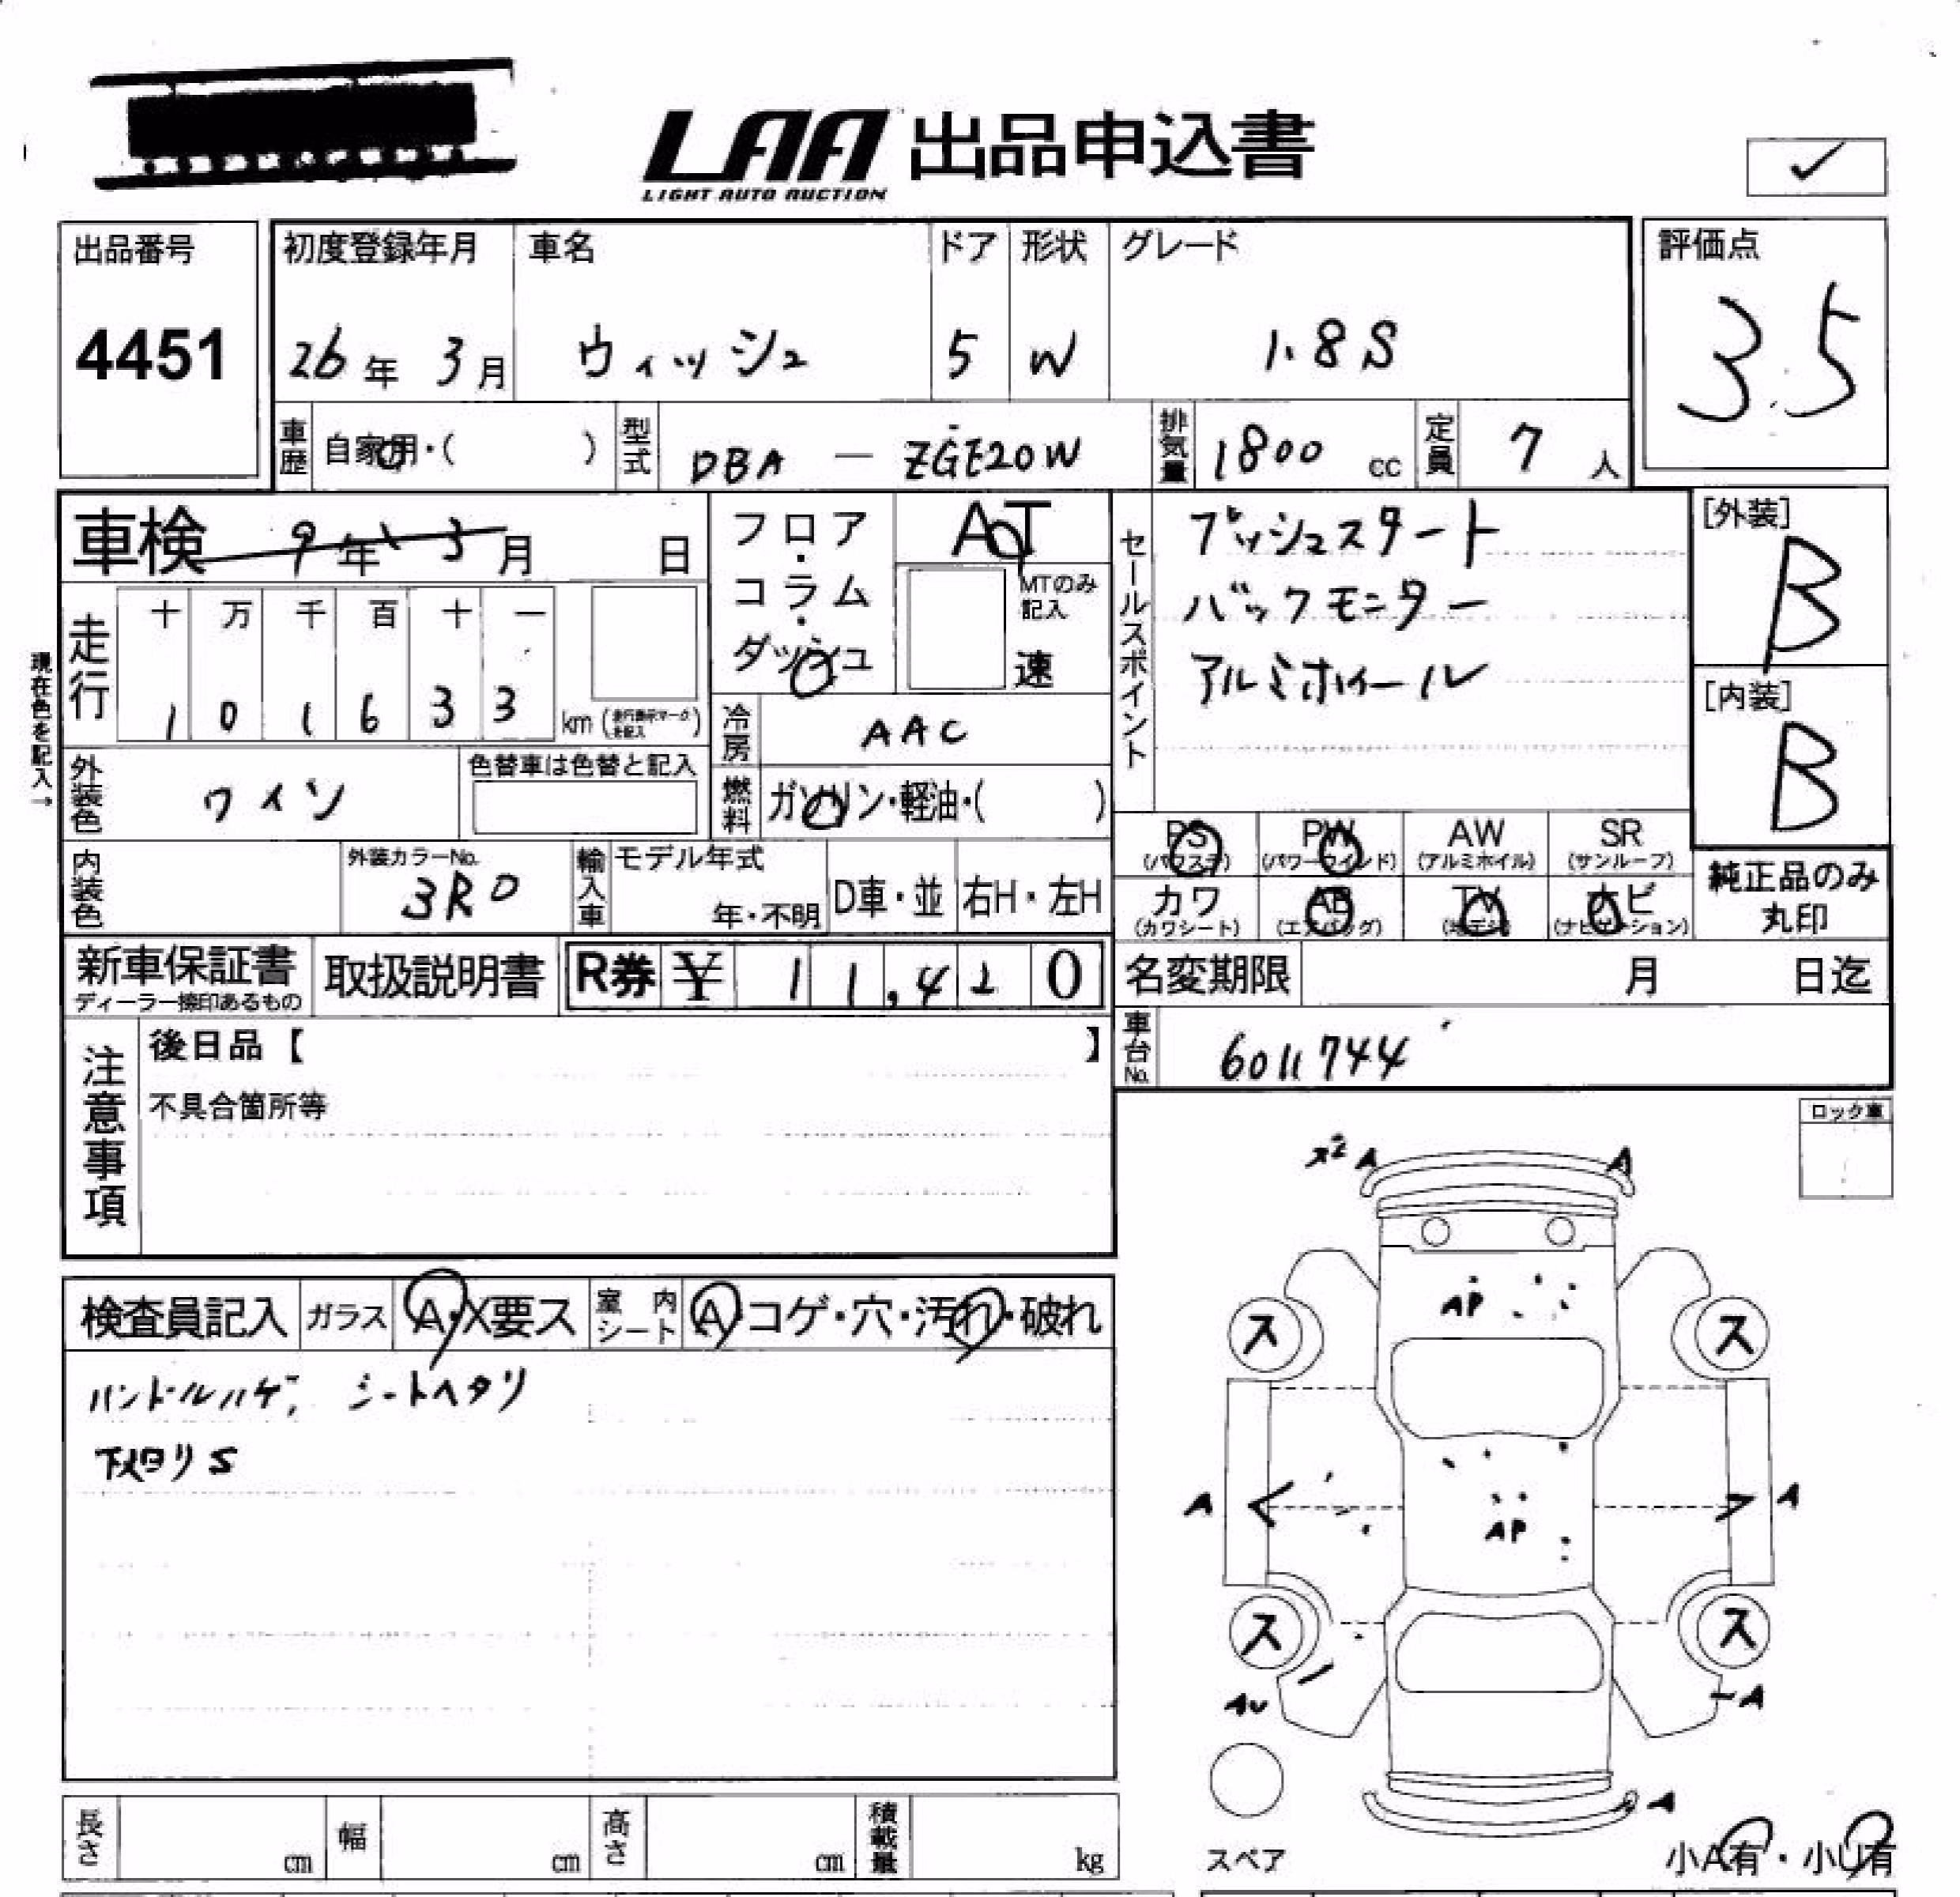 LAA 出品申込書
LIGHT AUTO AUCTION
✓
出品番号
4451
初度登録年月 車名 ドア 形状 グレード
26年 3月 ウィッシュ 5 W 1.8S
評価点
3.5
車歴 自家用・( ) 型式 DBA — ZGE20W 排気量 1800 cc 定員 7 人
車検 9年 3月 日
フロア・コラム・ダッシュ
AT
MTのみ記入
速
セールスポイント
プッシュスタート
バックモニター
アルミホイール
[外装]
B
[内装]
B
現在色を記入→
走行
十 万 千 百 十 一
1 0 1 6 3 3 km (走行表示マーク未記入)
冷房 AAC
外装色 ワイン 色替車は色替と記入
燃料 ガソリン・軽油・( )
PS (パワステ) PW (パワーウインド) AW (アルミホイル) SR (サンルーフ)
カワ (カワシート) AB (エアバッグ) TV (地デジ) ナビ (ナビゲーション)
純正品のみ丸印
内装色 外装カラーNo. 3R0 輸入車 モデル年式 年・不明 D車・並 右H・左H
新車保証書 ディーラー捺印あるもの 取扱説明書 R券 ¥ 11,420
名変期限 月 日迄
車台No. 6011744
注意事項
後日品【 】
不具合箇所等
ロック車
検査員記入 ガラス A・X要ス 室内シート A・コゲ・穴・汚れ・破れ
ハンドルハゲ, シートヘタリ
下回りS
x2 A A
AP
ス ス
A A
AP
ス ス
AU A
A
スペア
小A有・小U有
長さ cm 幅 cm 高さ cm 積載量 kg